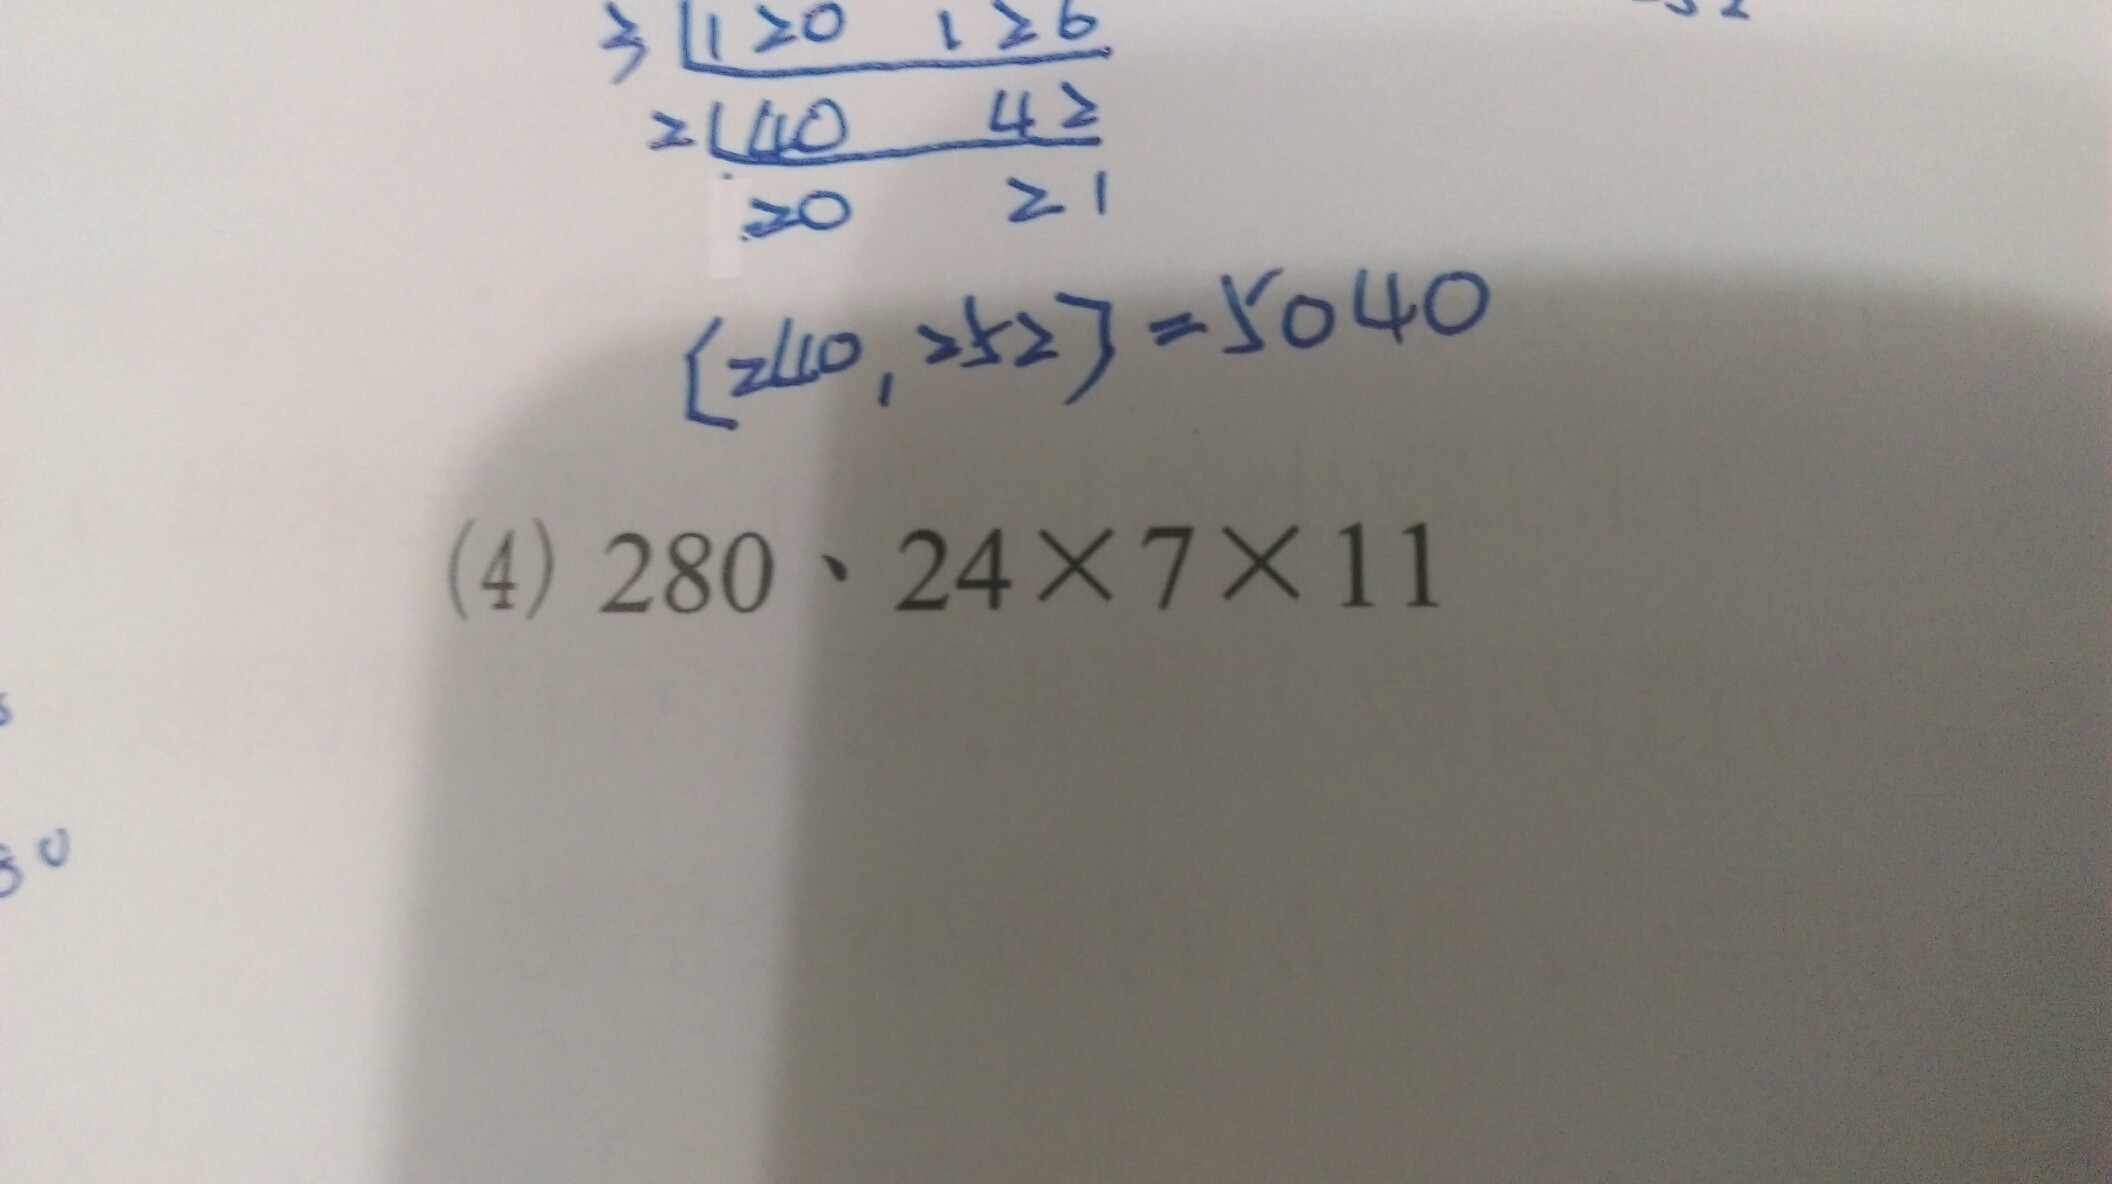 3 120 126
2 40 42
20 21
[240,252]=5040
(4) 280、24×7×11